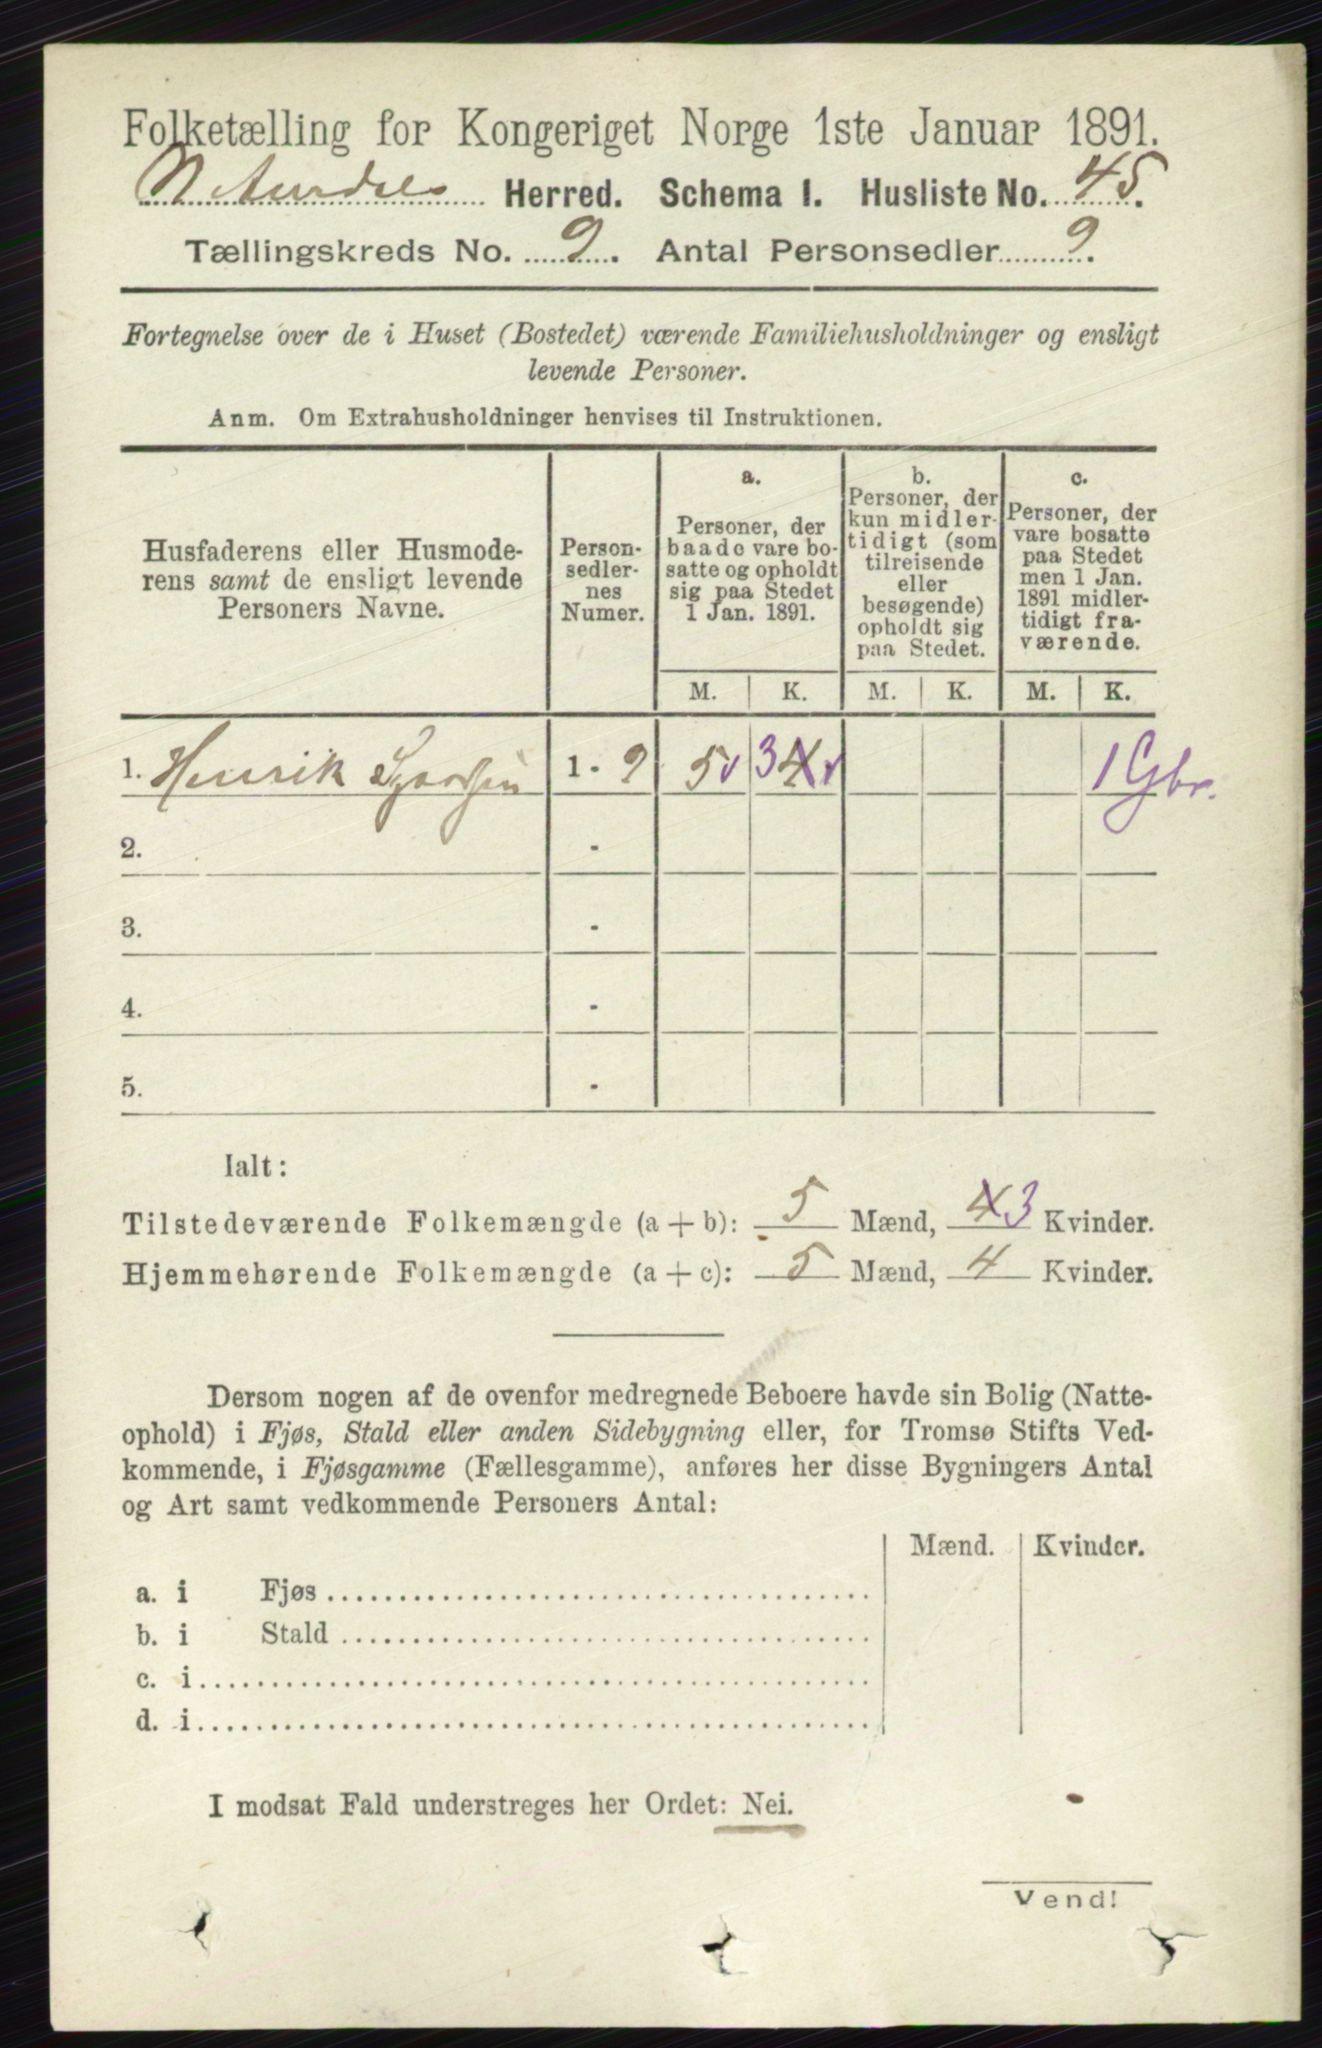 Folketælling for Kongeriget Norge 1ste Januar 1891.
N. Aurdals Herred. Schema I. Husliste No. 45.
Tællingskreds No. 9. Antal Personsedler 9.
Fortegnelse over de i Huset (Bostedet) værende Familiehusholdninger og ensligt
levende Personer.
Anm. Om Extrahusholdninger henvises til Instruktionen.
Husfaderens eller Husmode-
rens samt de ensligt levende
Personers Navne.
Person-
sedler-
nes
Numer.
a.
Personer, der
baade vare bo-
satte og opholdt
sig paa Stedet
1 Jan. 1891.
b.
Personer, der
kun midler-
tidigt (som
tilreisende
eller
besøgende)
opholdt sig
paa Stedet.
c.
Personer, der
vare bosatte
paa Stedet
men 1 Jan.
1891 midler-
tidigt fra-
værende.
M. K. M. K. M. K.
1. Henrik 1 - 9 5 v 3 4 v 1 Gbr.
2. -
3. -
4. -
5. -
Ialt:
Tilstedeværende Folkemængde (a + b): 5 Mænd, 4 3 Kvinder.
Hjemmehørende Folkemængde (a + c): 5 Mænd, 4 Kvinder.
Dersom nogen af de ovenfor medregnede Beboere havde sin Bolig (Natte-
ophold) i Fjøs, Stald eller anden Sidebygning eller, for Tromsø Stifts Ved-
kommende, i Fjøsgamme (Fællesgamme), anføres her disse Bygningers Antal
og Art samt vedkommende Personers Antal:
Mænd. Kvinder.
a. i Fjøs
b. i Stald
c. i
d. i
I modsat Fald understreges her Ordet: Nei.
Vend!